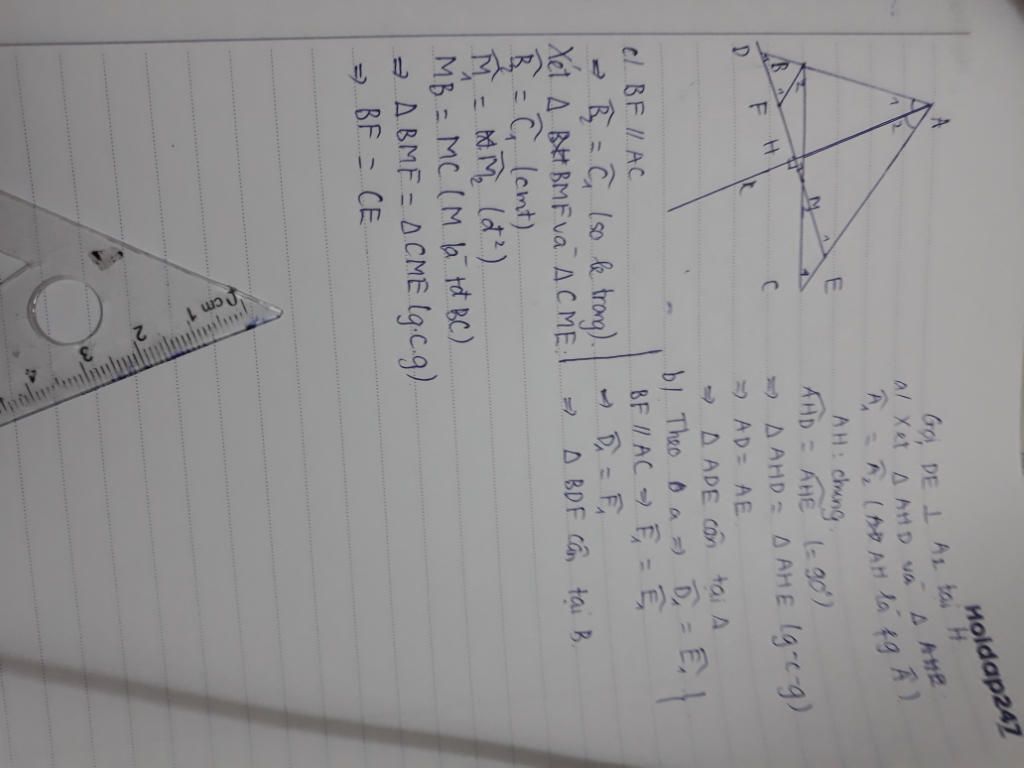 Hoidap247
Gọi DE ⊥ AI tại H
a/ Xét Δ AHD và Δ AHE
Â₁ = Â₂ (AH là fg Â)
AH : chung
AHD = AHE (= 90°)
⇒ Δ AHD = Δ AHE (g-c-g)
⇒ AD = AE
⇒ Δ ADE cân tại A
b/ Theo a ⇒ D̂₁ = Ê₁
BF // AC ⇒ F̂₁ = Ê₁
⇒ D̂₁ = F̂₁
⇒ Δ BDF cân tại B
c/ BF // AC
⇒ B̂₂ = Ĉ₁ (so le trong)
Xét Δ BMF và Δ CME
B̂₂ = Ĉ₁ (cmt)
M̂₁ = M̂₂ (đ²)
MB = MC (M là tđ BC)
⇒ Δ BMF = Δ CME (g.c.g)
⇒ BF = CE
A
1 2
D
B
1
2
F
H
x
M
2
1
E
C
1
cm 1
2
3
4